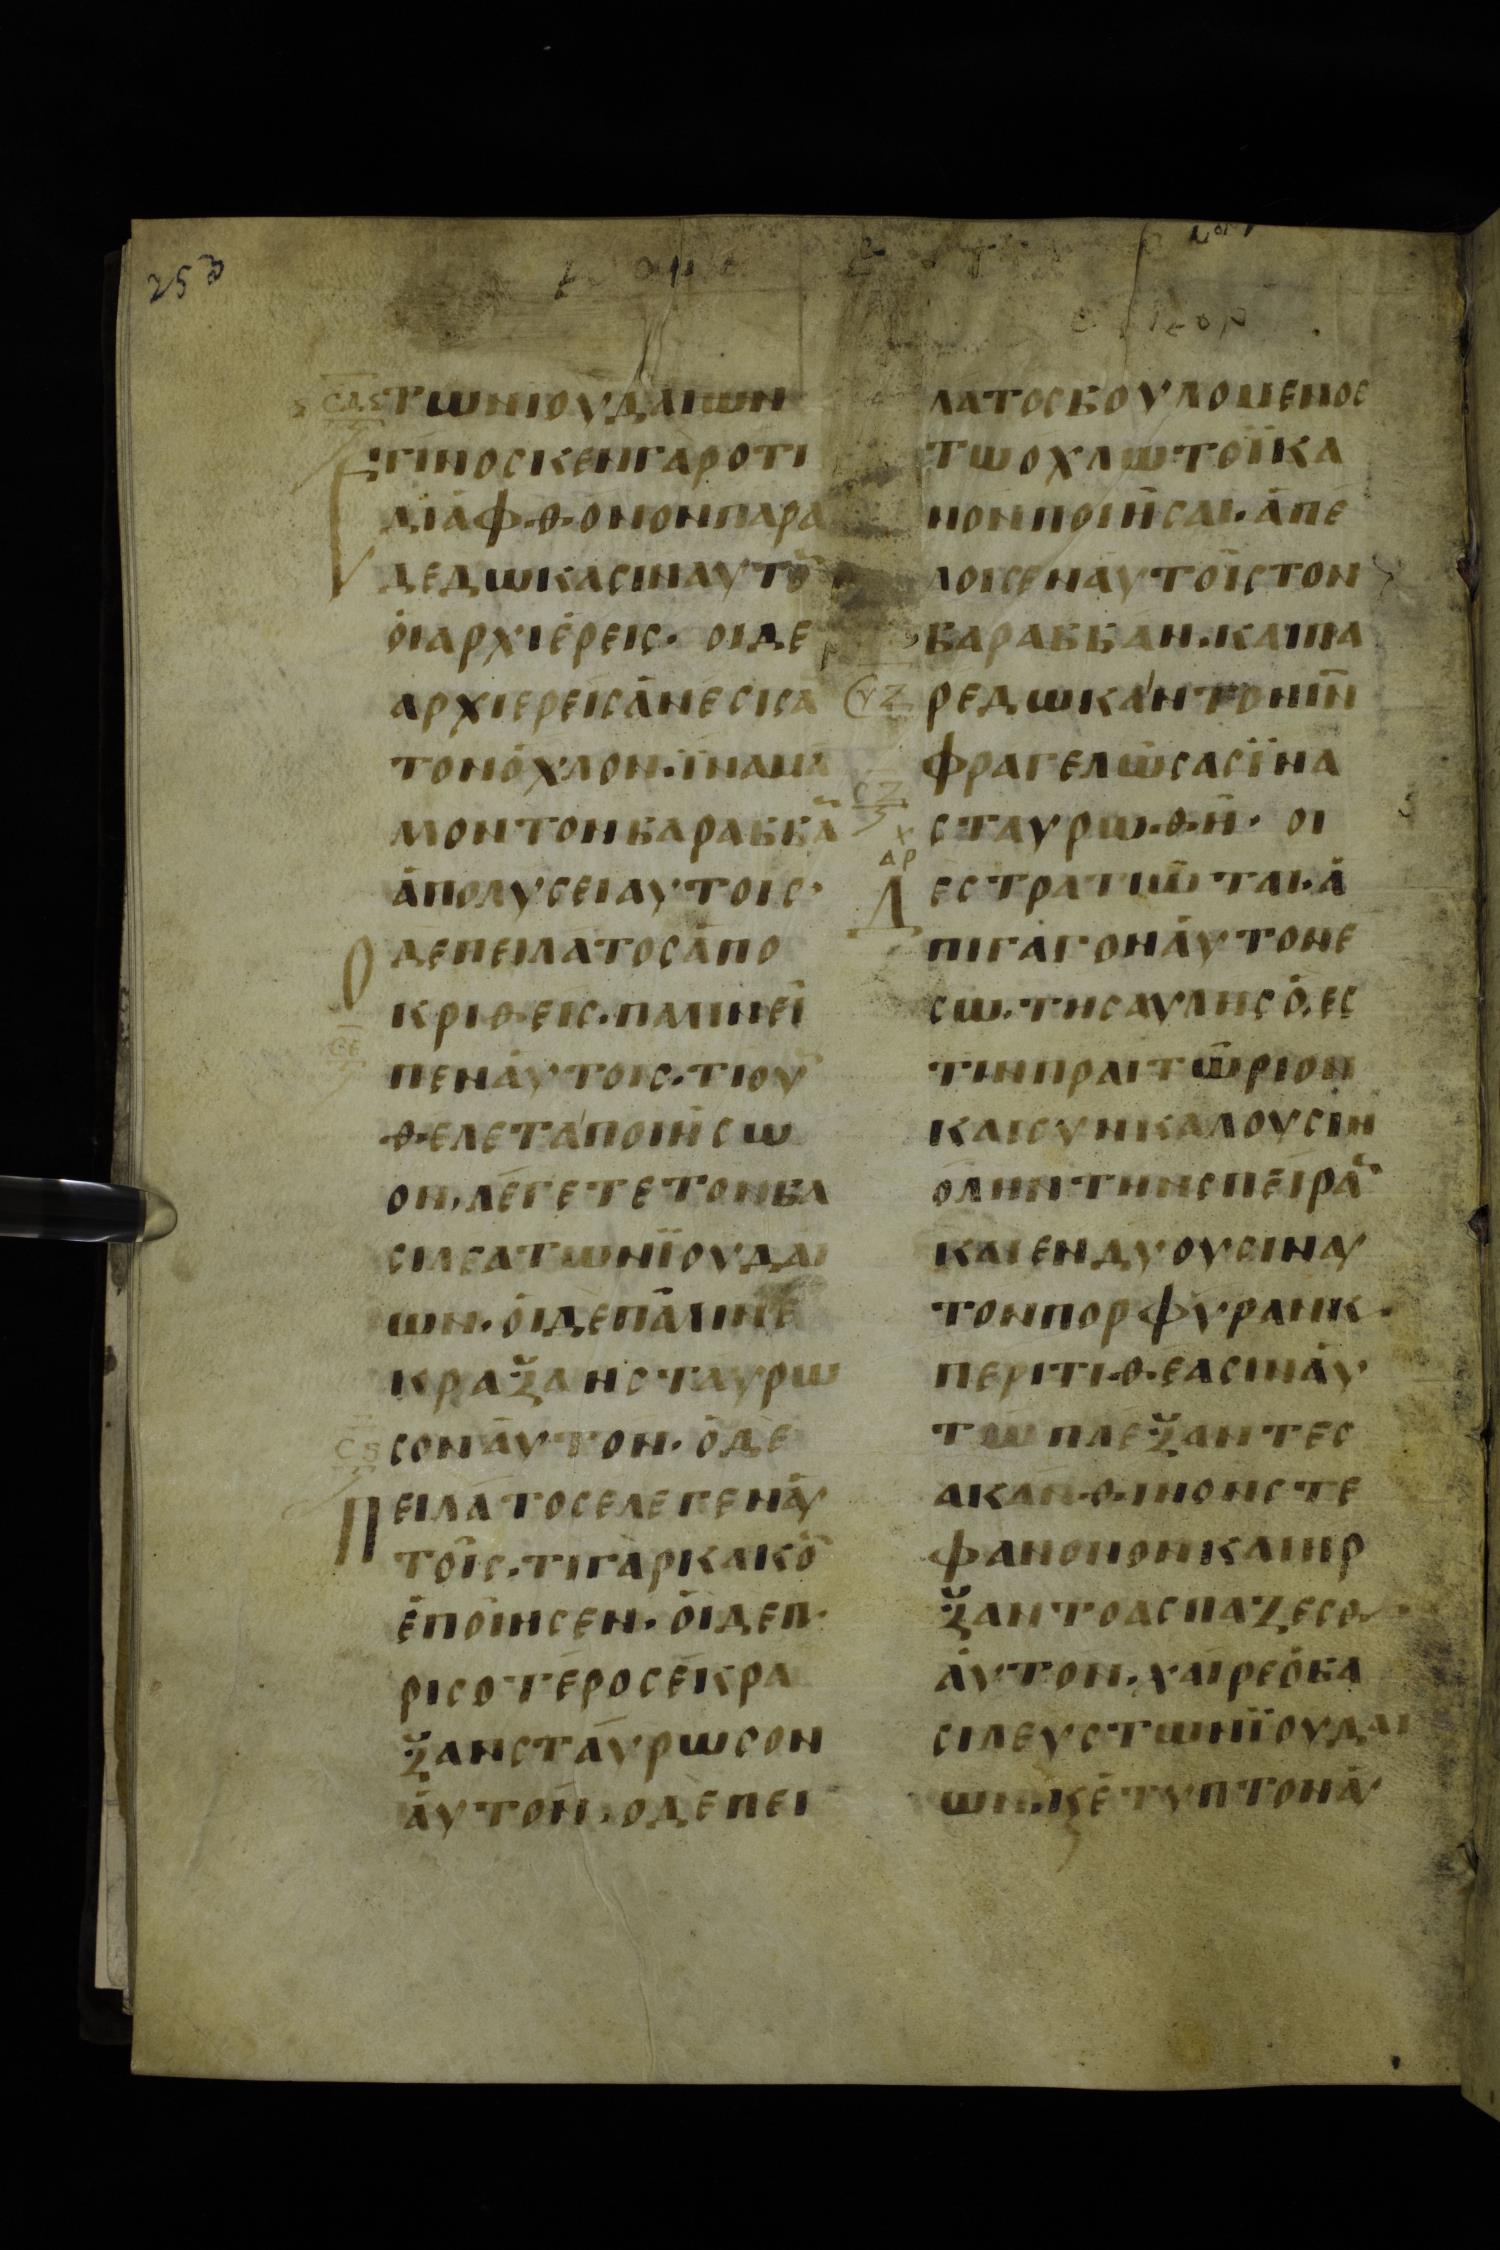 253
ΤΩΝΙΟΥΔΑΙΩΝ
ΕΓΙΝΟΣΚΕΝΓΑΡΟΤΙ
ΔΙΑΦΘΟΝΟΝΠΑΡΑ
ΔΕΔΩΚΑΣΙΝΑΥΤΟ̅
ΟΙΑΡΧΙΕΡΕΙΣ· ΟΙΔΕ
ΑΡΧΙΕΡΕΙΣΑΝΕΣΙΣΑ̅
ΤΟΝΟΧΛΟΝ·ΪΝΑΜΑ
ΜΟΝΤΟΝΒΑΡΑΒΒΑ̅
ΑΠΟΛΥΣΕΙΑΥΤΟΙΣ·
Ο ΔΕΠΕΙΛΑΤΟΣΑΠΟ
ΚΡΙΘΕΙΣ·ΠΑΛΙΝΕΙ
ΠΕΝΑΥΤΟΙΣ·ΤΙΟΥ̅
ΘΕΛΕΤΑΠΟΙΗΣΩ
ΟΝ·ΛΕΓΕΤΕΤΟΝΒΑ
ΣΙΛΕΑΤΩΝΪΟΥΔΑΙ
ΩΝ·ΟΙΔΕΠΑΛΙΝΕ
ΚΡΑΞΑΝΣΤΑΥΡΩ
ΣΟΝΑΥΤΟΝ·ΟΔΕ
ΠΕΙΛΑΤΟΣΕΛΕΓΕΝΑΥ
ΤΟΙΣ·ΤΙΓΑΡΚΑΚΟ̅
ΕΠΟΙΗΣΕΝ·ΟΙΔΕΠ·
ΡΙΣΟΤΕΡΟΣΕΚΡΑ
ΞΑΝΣΤΑΥΡΩΣΟΝ
ΑΥΤΟΝ·ΟΔΕΠΕΙ
ΛΑΤΟΣΒΟΥΛΟΜΕΝΟΣ
ΤΩΟΧΛΩΤΟΪΚΑ
ΝΟΝΠΟΙΗΣΑΙ·ΑΠΕ
ΛΟΙΣΕΝΑΥΤΟΙΣΤΟΝ
ΒΑΡΑΒΒΑΝ·ΚΑΙΠΑ
ΡΕΔΩΚΑΝΤΟΝΙΝ̅
ΦΡΑΓΕΛΩΣΑΣΪΝΑ
ΣΤΑΥΡΩΘΗ· ΟΙ
Δ ΕΣΤΡΑΤΙΩΤΑΙ·Α
ΠΙΓΑΓΟΝΑΥΤΟΝΕ
ΣΩ·ΤΗΣΑΥΛΗΣΟ·ΕΣ
ΤΙΝΠΡΑΙΤΩΡΙΟΝ
ΚΑΙΣΥΝΚΑΛΟΥΣΙΝ
ΟΛΗΝΤΗΝΣΠΕΙΡΑ̅
ΚΑΙΕΝΔΥΟΥΣΙΝΑΥ
ΤΟΝΠΟΡΦΥΡΑΝΚ·
ΠΕΡΙΤΙΘΕΑΣΙΝΑΥ
ΤΩΠΛΕΞΑΝΤΕΣ
ΑΚΑΝΘΙΝΟΝΣΤΕ
ΦΑΝΟΝΟΝΚΑΙΗΡ
ΞΑΝΤΟΑΣΠΑΖΕΣΘ
ΑΥΤΟΝ·ΧΑΙΡΕΟΒΑ
ΣΙΛΕΥΣΤΩΝΪΟΥΔΑΙ
ΩΝ·Κ̀ΕΤΥΠΤΟΝΑΥ